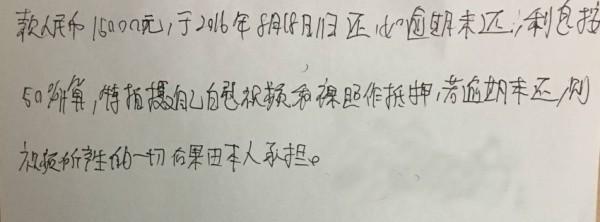 款人民币15000元,于2016年8月18日归还,如逾期未还,利息按
50%计算,特拍摄自己自慰视频和裸照作抵押,若逾期未还,则
视频所产生的一切后果由本人承担。